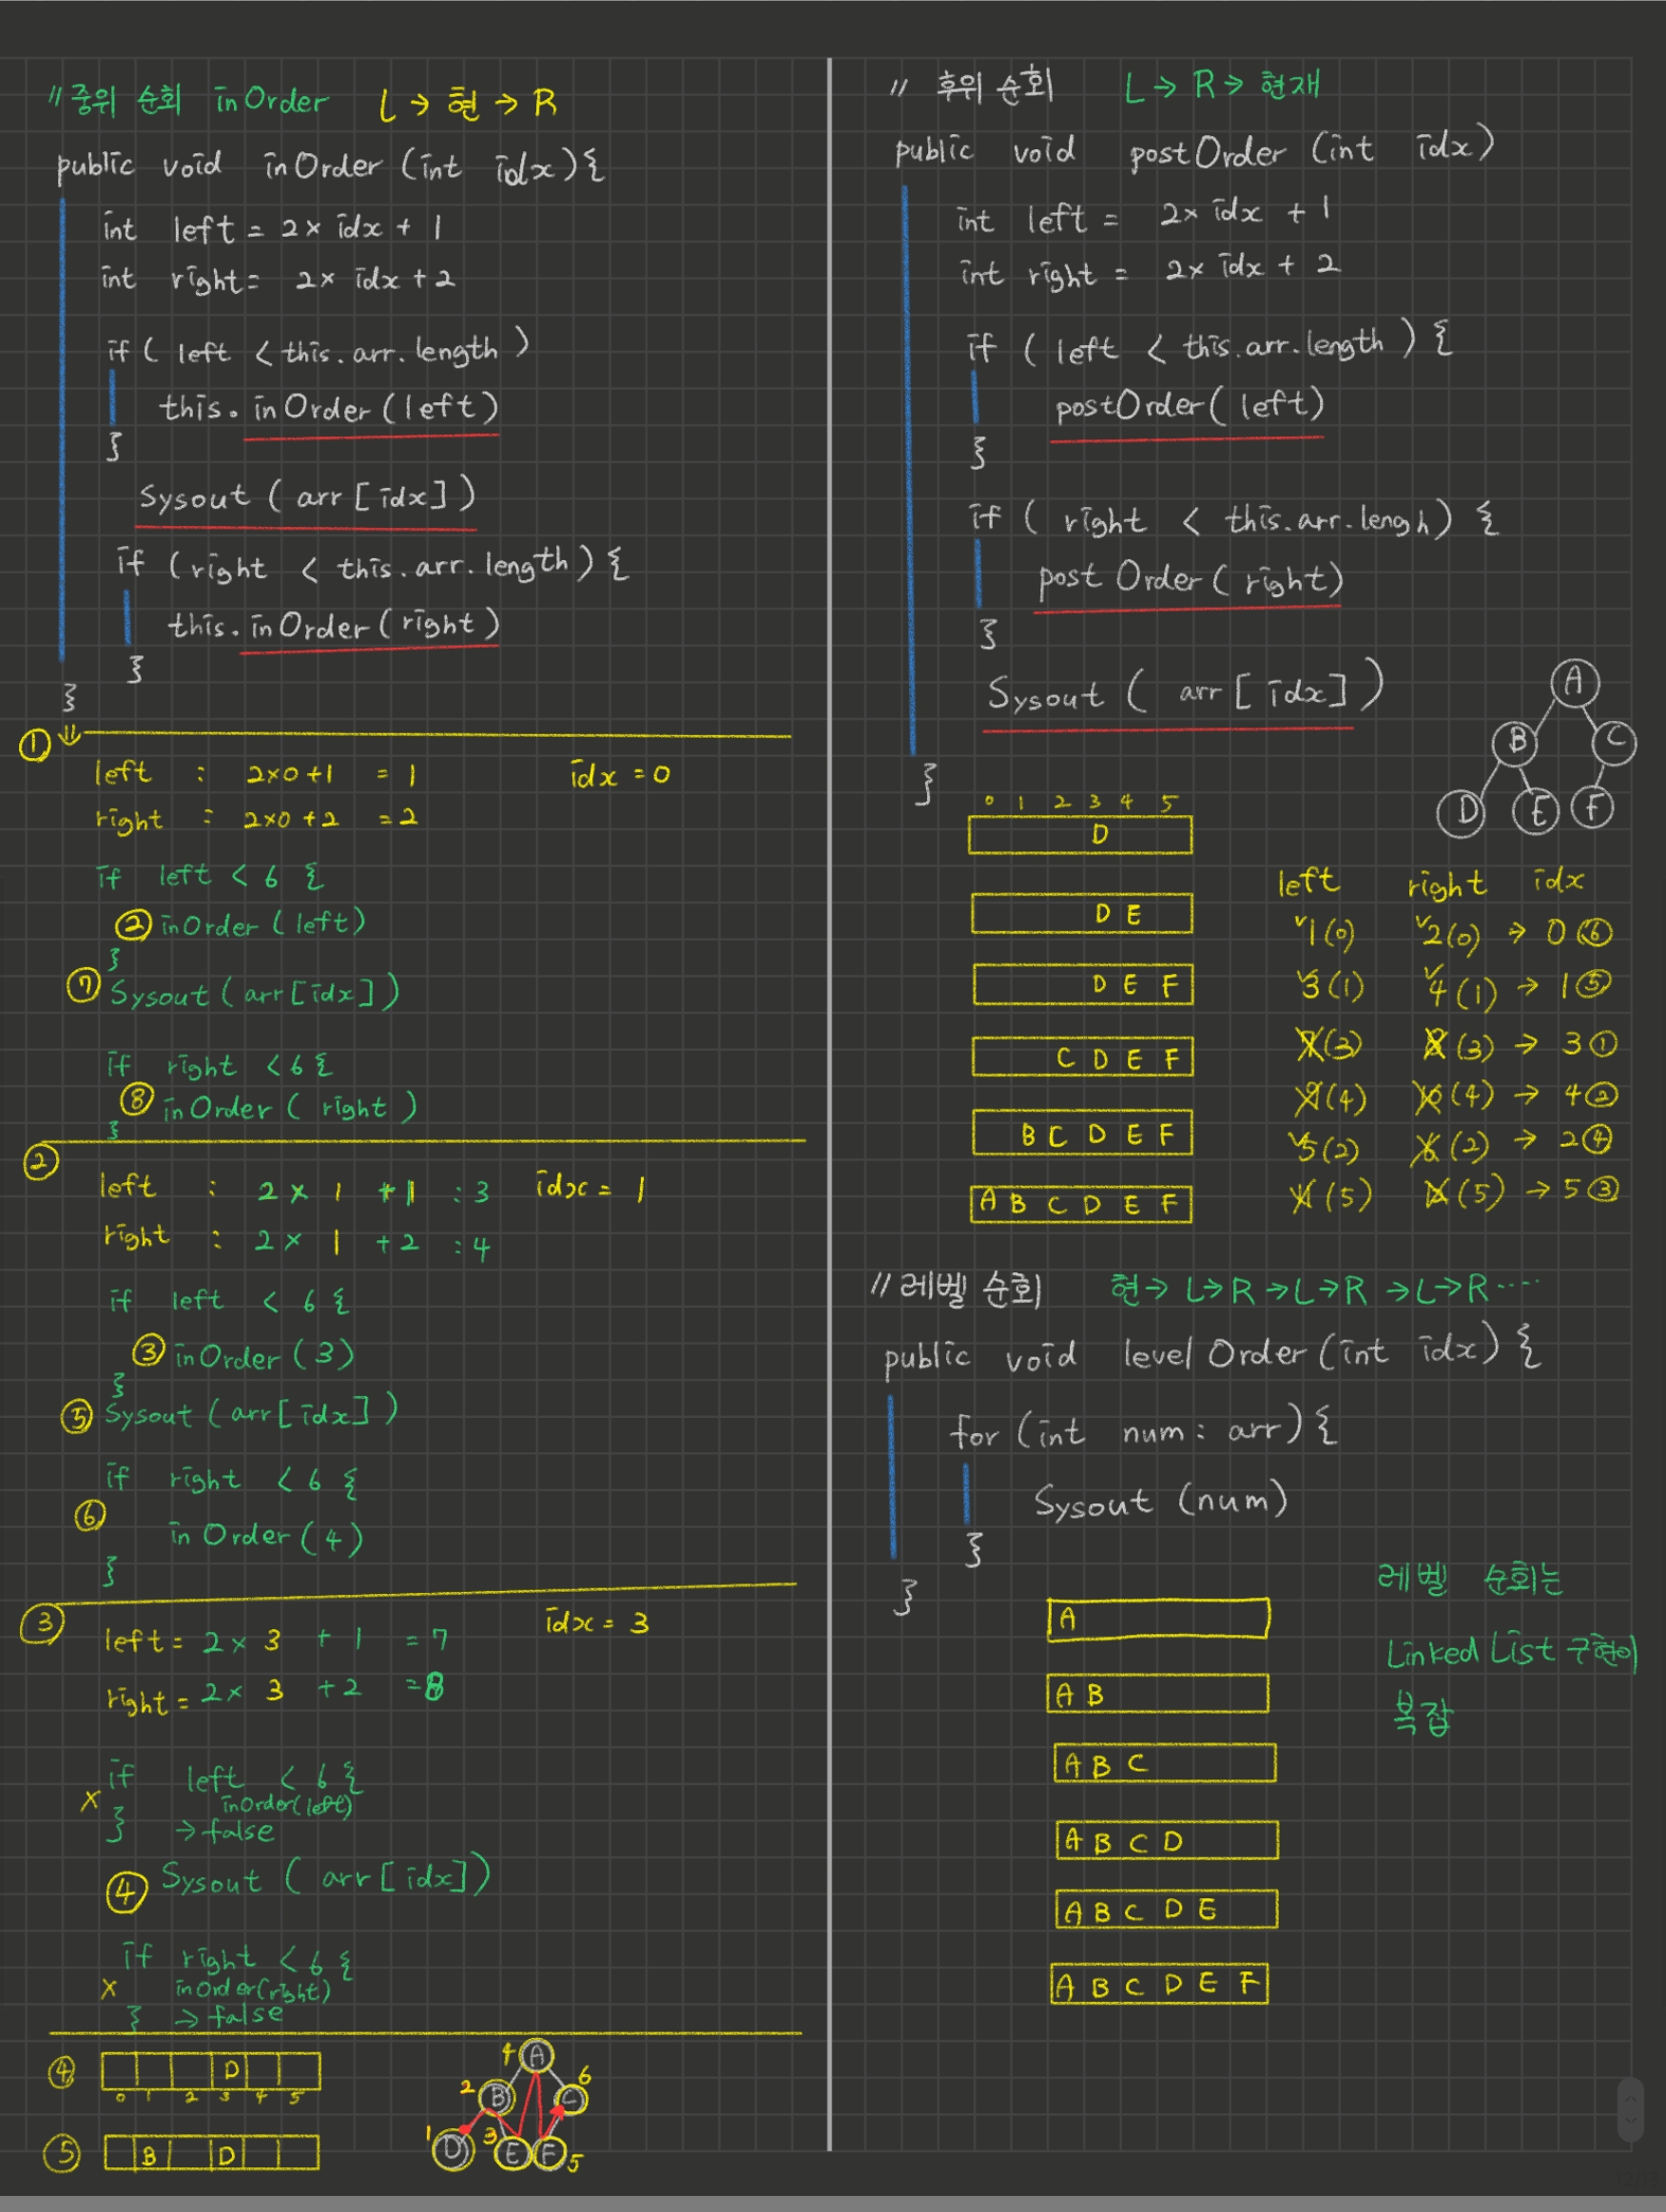 // 중위 순회 inOrder L → 현 → R
public void inOrder (int idx){
int left = 2× idx + 1
int right= 2× idx +2
if ( left < this.arr.length )
this. inOrder (left)
}
Sysout ( arr [ idx] )
if (right < this.arr.length) {
this. inOrder (right )
}
}
① ⇓
left : 2×0+1 = 1 idx = 0
right : 2×0 +2 =2
if left < 6 {
② inOrder ( left)
}
⑦ Sysout ( arr [idx] )
if right <6 {
⑧ inOrder ( right )
}
②
left : 2 × 1 +1 : 3 idx = 1
right : 2 × 1 +2 : 4
if left < 6 {
③ inOrder ( 3 )
}
⑤ Sysout ( arr [ idx] )
if right < 6 {
⑥ inOrder ( 4 )
}
③ idx = 3
left = 2 × 3 + 1 = 7
right = 2 × 3 +2 =8
if left < 6 {
X inOrder(left)
} → false
④ Sysout ( arr [ idx] )
if right < 6 {
X inOrder(right)
} → false
④ D
0 1 2 3 4 5
⑤ B D
4 A
2 B C 6
1 D 3 E F 5
// 후위 순회 L → R → 현재
public void postOrder (int idx)
int left = 2× idx + 1
int right = 2× idx + 2
if ( left < this.arr.length ) {
postOrder( left)
}
if ( right < this.arr.lengh) {
post Order ( right)
}
Sysout ( arr [ idx] )
}
A
B C
D E F
0 1 2 3 4 5
D
D E
D E F
C D E F
B C D E F
A B C D E F
left right idx
✓1(0) ✓2(0) → 0 ⑥
✓3(1) ✓4(1) → 1 ⑤
7(3) 8(3) → 3 ①
9(4) (4) → 4 ②
✓5(2) 6(2) → 2 ④
(5) (5) → 5 ③
// 레벨 순회 현→ L→R →L→R →L→R ····
public void level Order (int idx) {
for (int num : arr) {
Sysout (num)
}
}
A
A B
A B C
A B C D
A B C D E
A B C D E F
레벨 순회는
Linked List 구현이
복잡